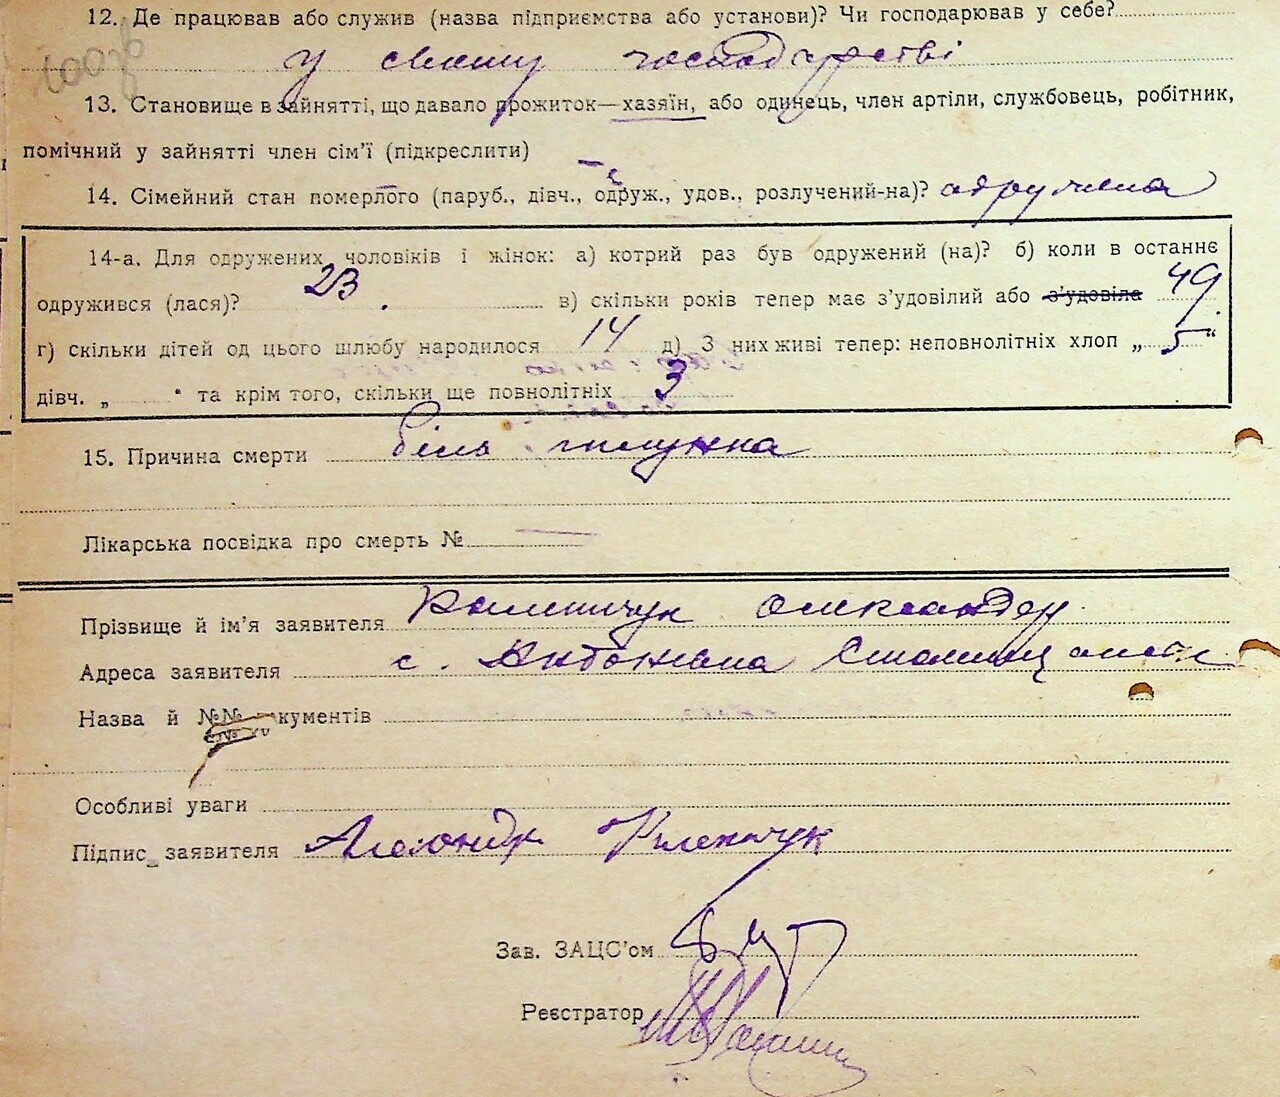 12. Де працював або служив (назва підприємства або установи)? Чи господарював у себе?
у своєму господарстві
13. Становище в зайнятті, що давало прожиток—хазяїн, або одинець, член артіли, службовець, робітник,
помічний у зайнятті член сім'ї (підкреслити)
14. Сімейний стан померлого (паруб., дівч., одруж., удов., розлучений-на)? одружена
14-а. Для одружених чоловіків і жінок: а) котрий раз був одружений (на)? б) коли в останнє
одружився (лася)? 23. в) скільки років тепер має з'удовілий або з'удовіла 49
г) скільки дітей од цього шлюбу народилося 14 д) З них живі тепер: неповнолітніх хлоп „ 5 “
дівч. „ “ та крім того, скільки ще повнолітніх 3
15. Причина смерти біль шлунка
Лікарська посвідка про смерть № —
Прізвище й ім'я заявителя Олександер
Адреса заявителя с.
Назва й №№ документів
Особливі уваги
Підпис заявителя
Зав. ЗАЦС'ом
Реєстратор